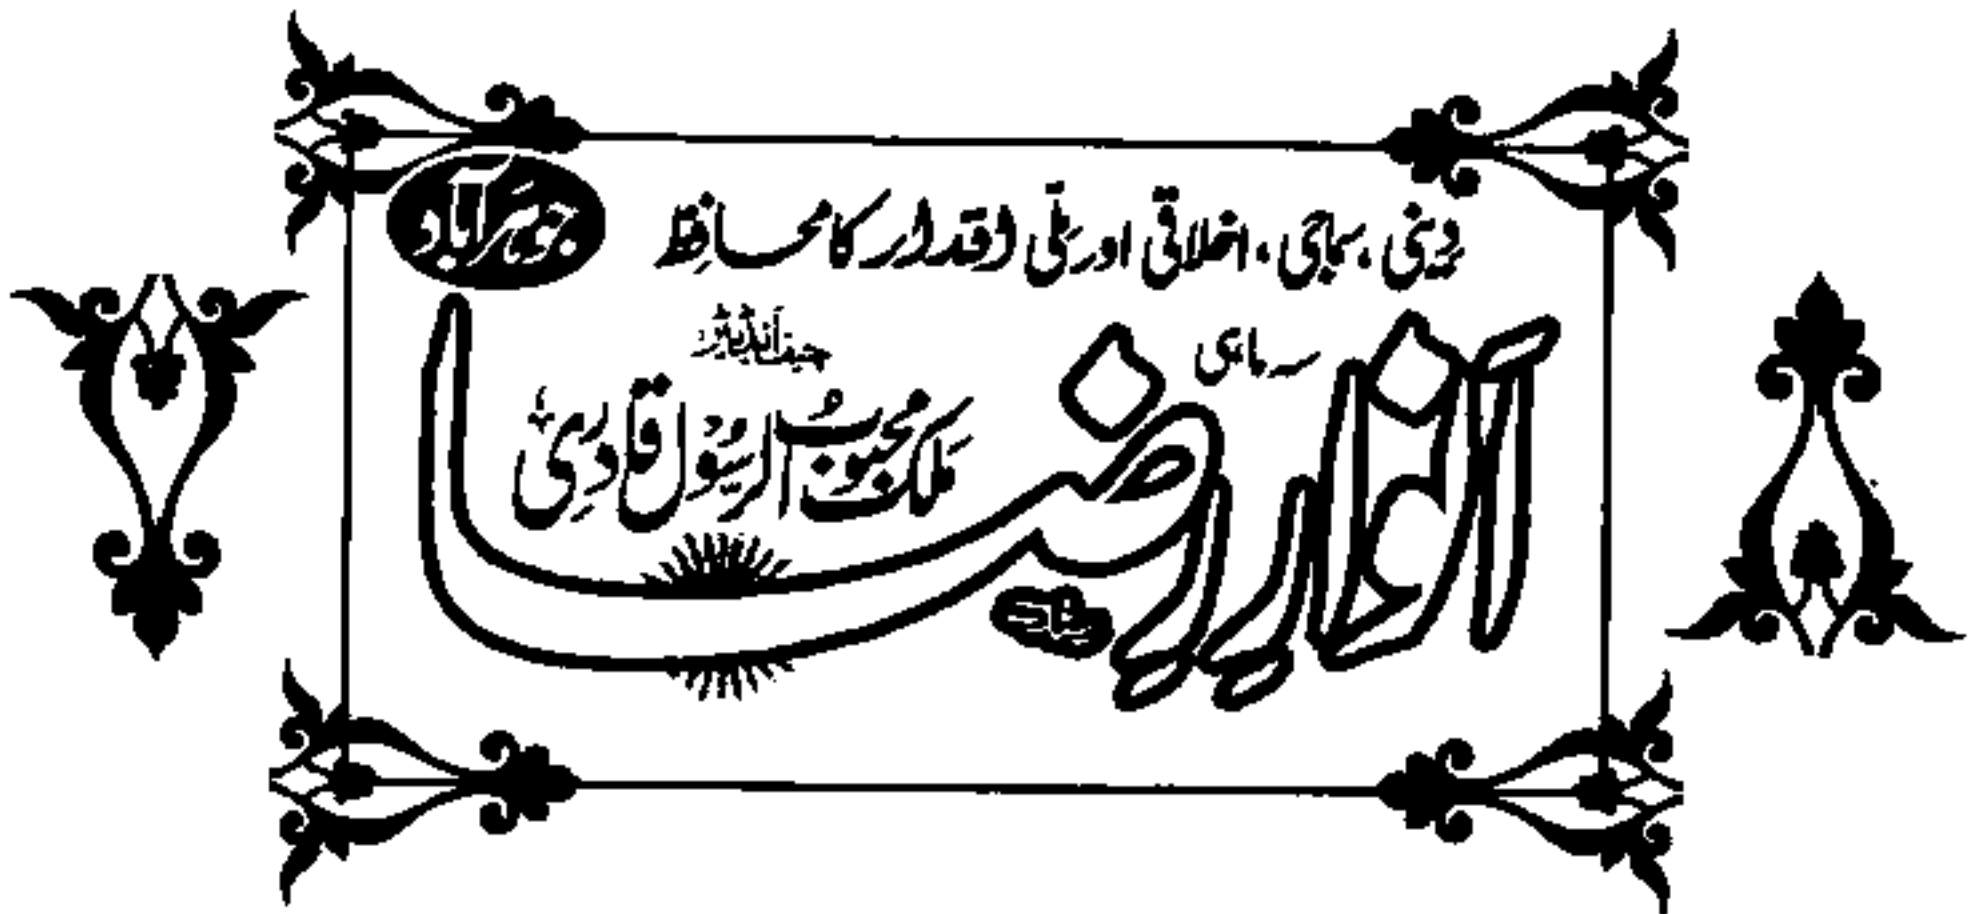 دینی، سماجی، اخلاقی اور ملّی اقدار کا محافظ
جوہرآباد
سہ ماہی
انوارِ رضا
چیف ایڈیٹر
ملک محبوب الرسول قادری